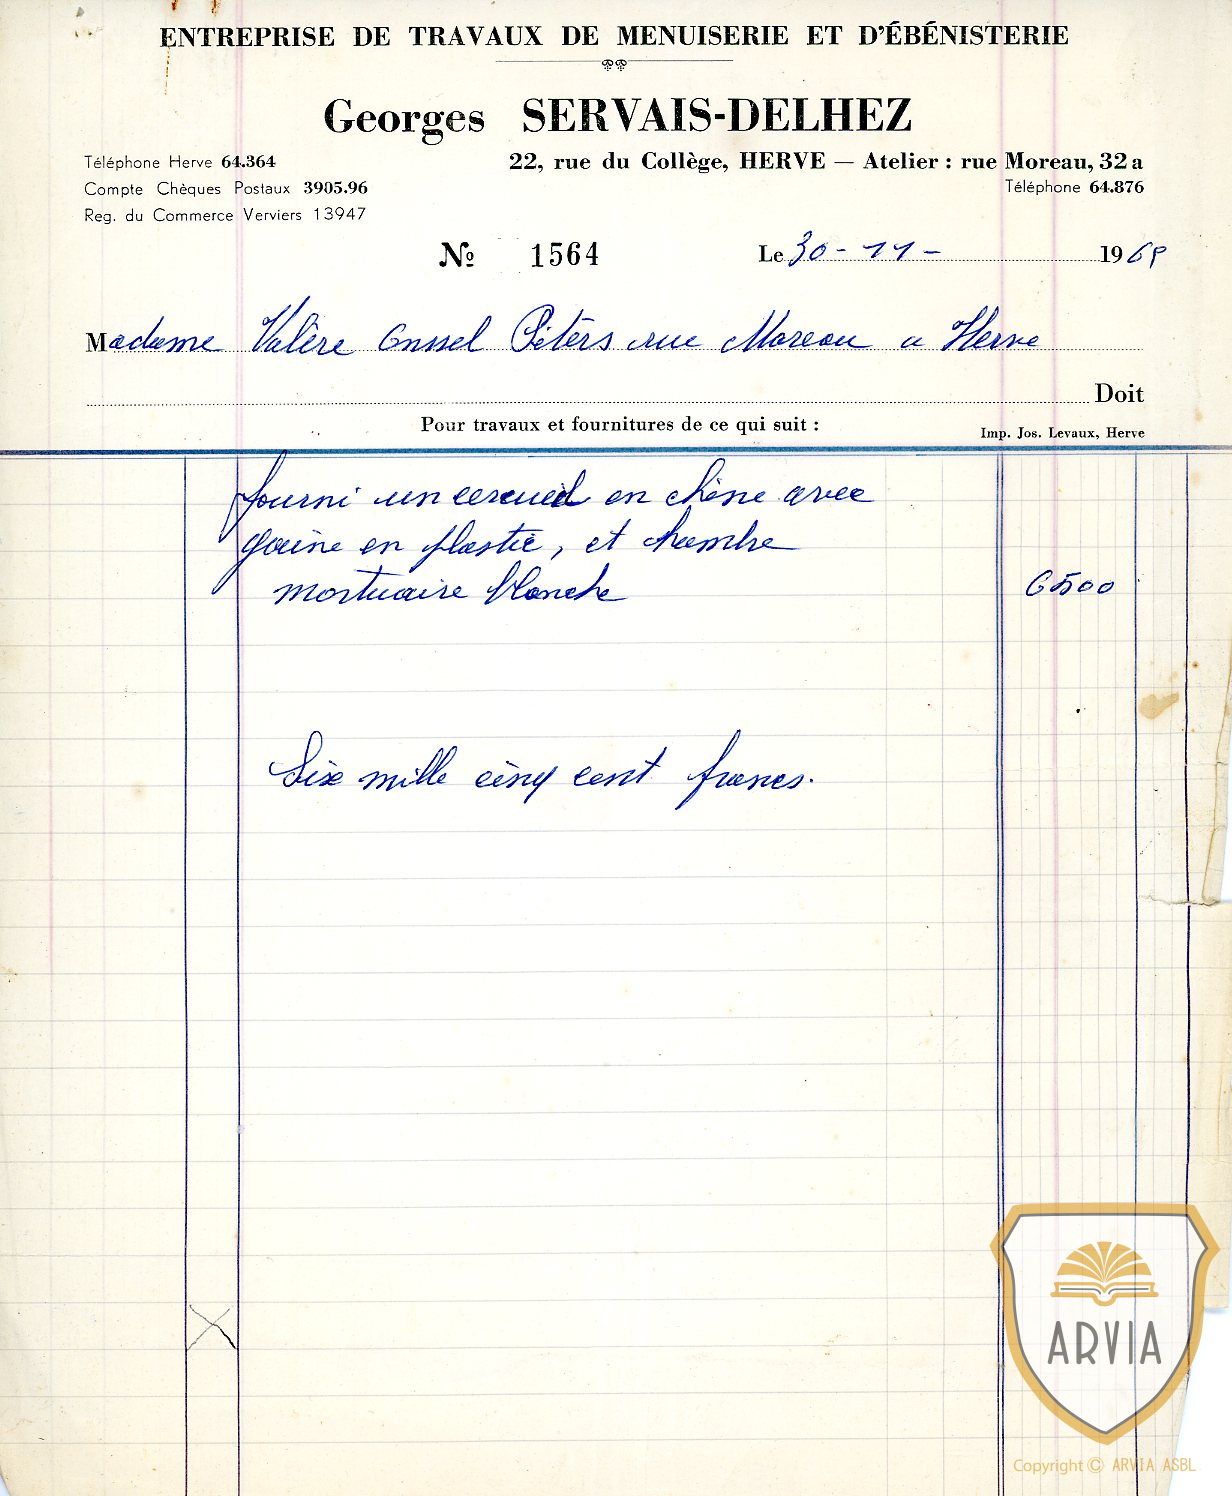 ENTREPRISE DE TRAVAUX DE MENUISERIE ET D'ÉBÉNISTERIE
Georges SERVAIS-DELHEZ
Téléphone Herve 64.364
22, rue du Collège, HERVE — Atelier : rue Moreau, 32 a
Compte Chèques Postaux 3905.96
Téléphone 64.876
Reg. du Commerce Verviers 13947
No 1564
Le 30-11- 19
Madame Valère Péters rue Moreau a Herve
Doit
Pour travaux et fournitures de ce qui suit :
Imp. Jos. Levaux, Herve
fourni un cercueil en chêne avec
gaine en plastic, et chambre
mortuaire blanche 6500
Six mille cinq cent francs.
ARVIA
Copyright © ARVIA ASBL